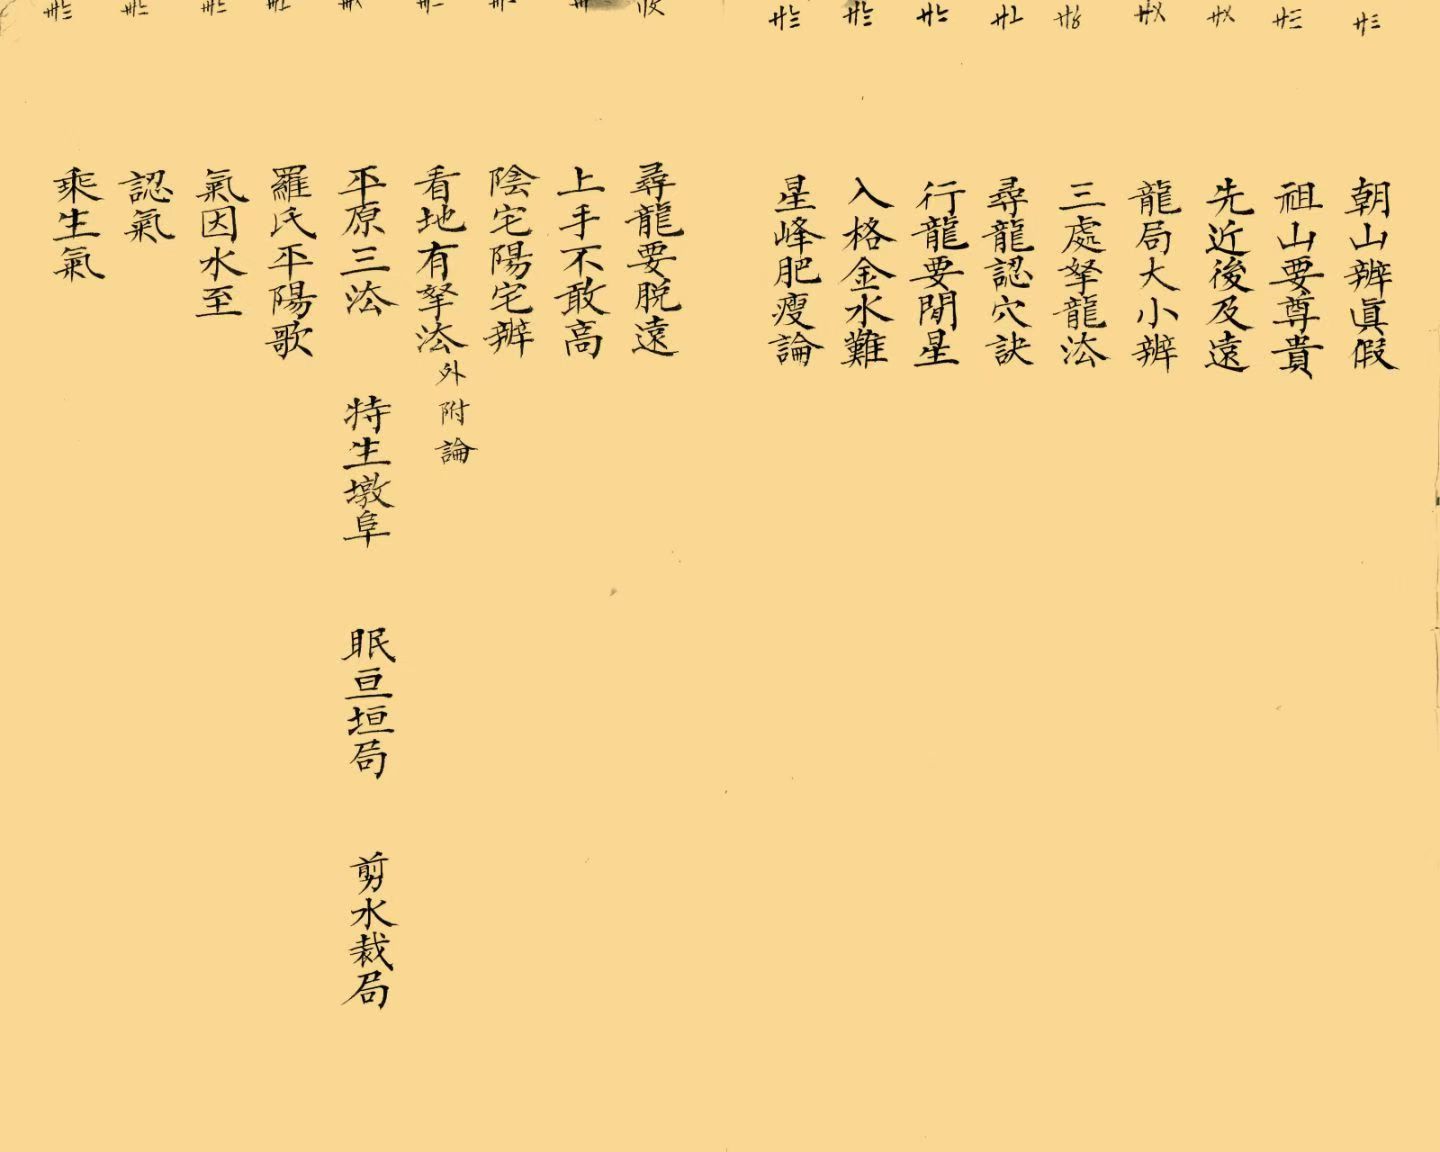 朝山辨眞假
祖山要尊貴
先近後及遠
龍局大小辨
三處拏龍法
尋龍認穴訣
行龍要閒星
入格金水難
星峰肥瘦論
尋龍要脱遠
上手不敢高
陰宅陽宅辨
看地有拏法外附論
平原三法 特生墩阜 眠亘垣局 剪水裁局
羅氏平陽歌
氣因水至
認氣
乘生氣